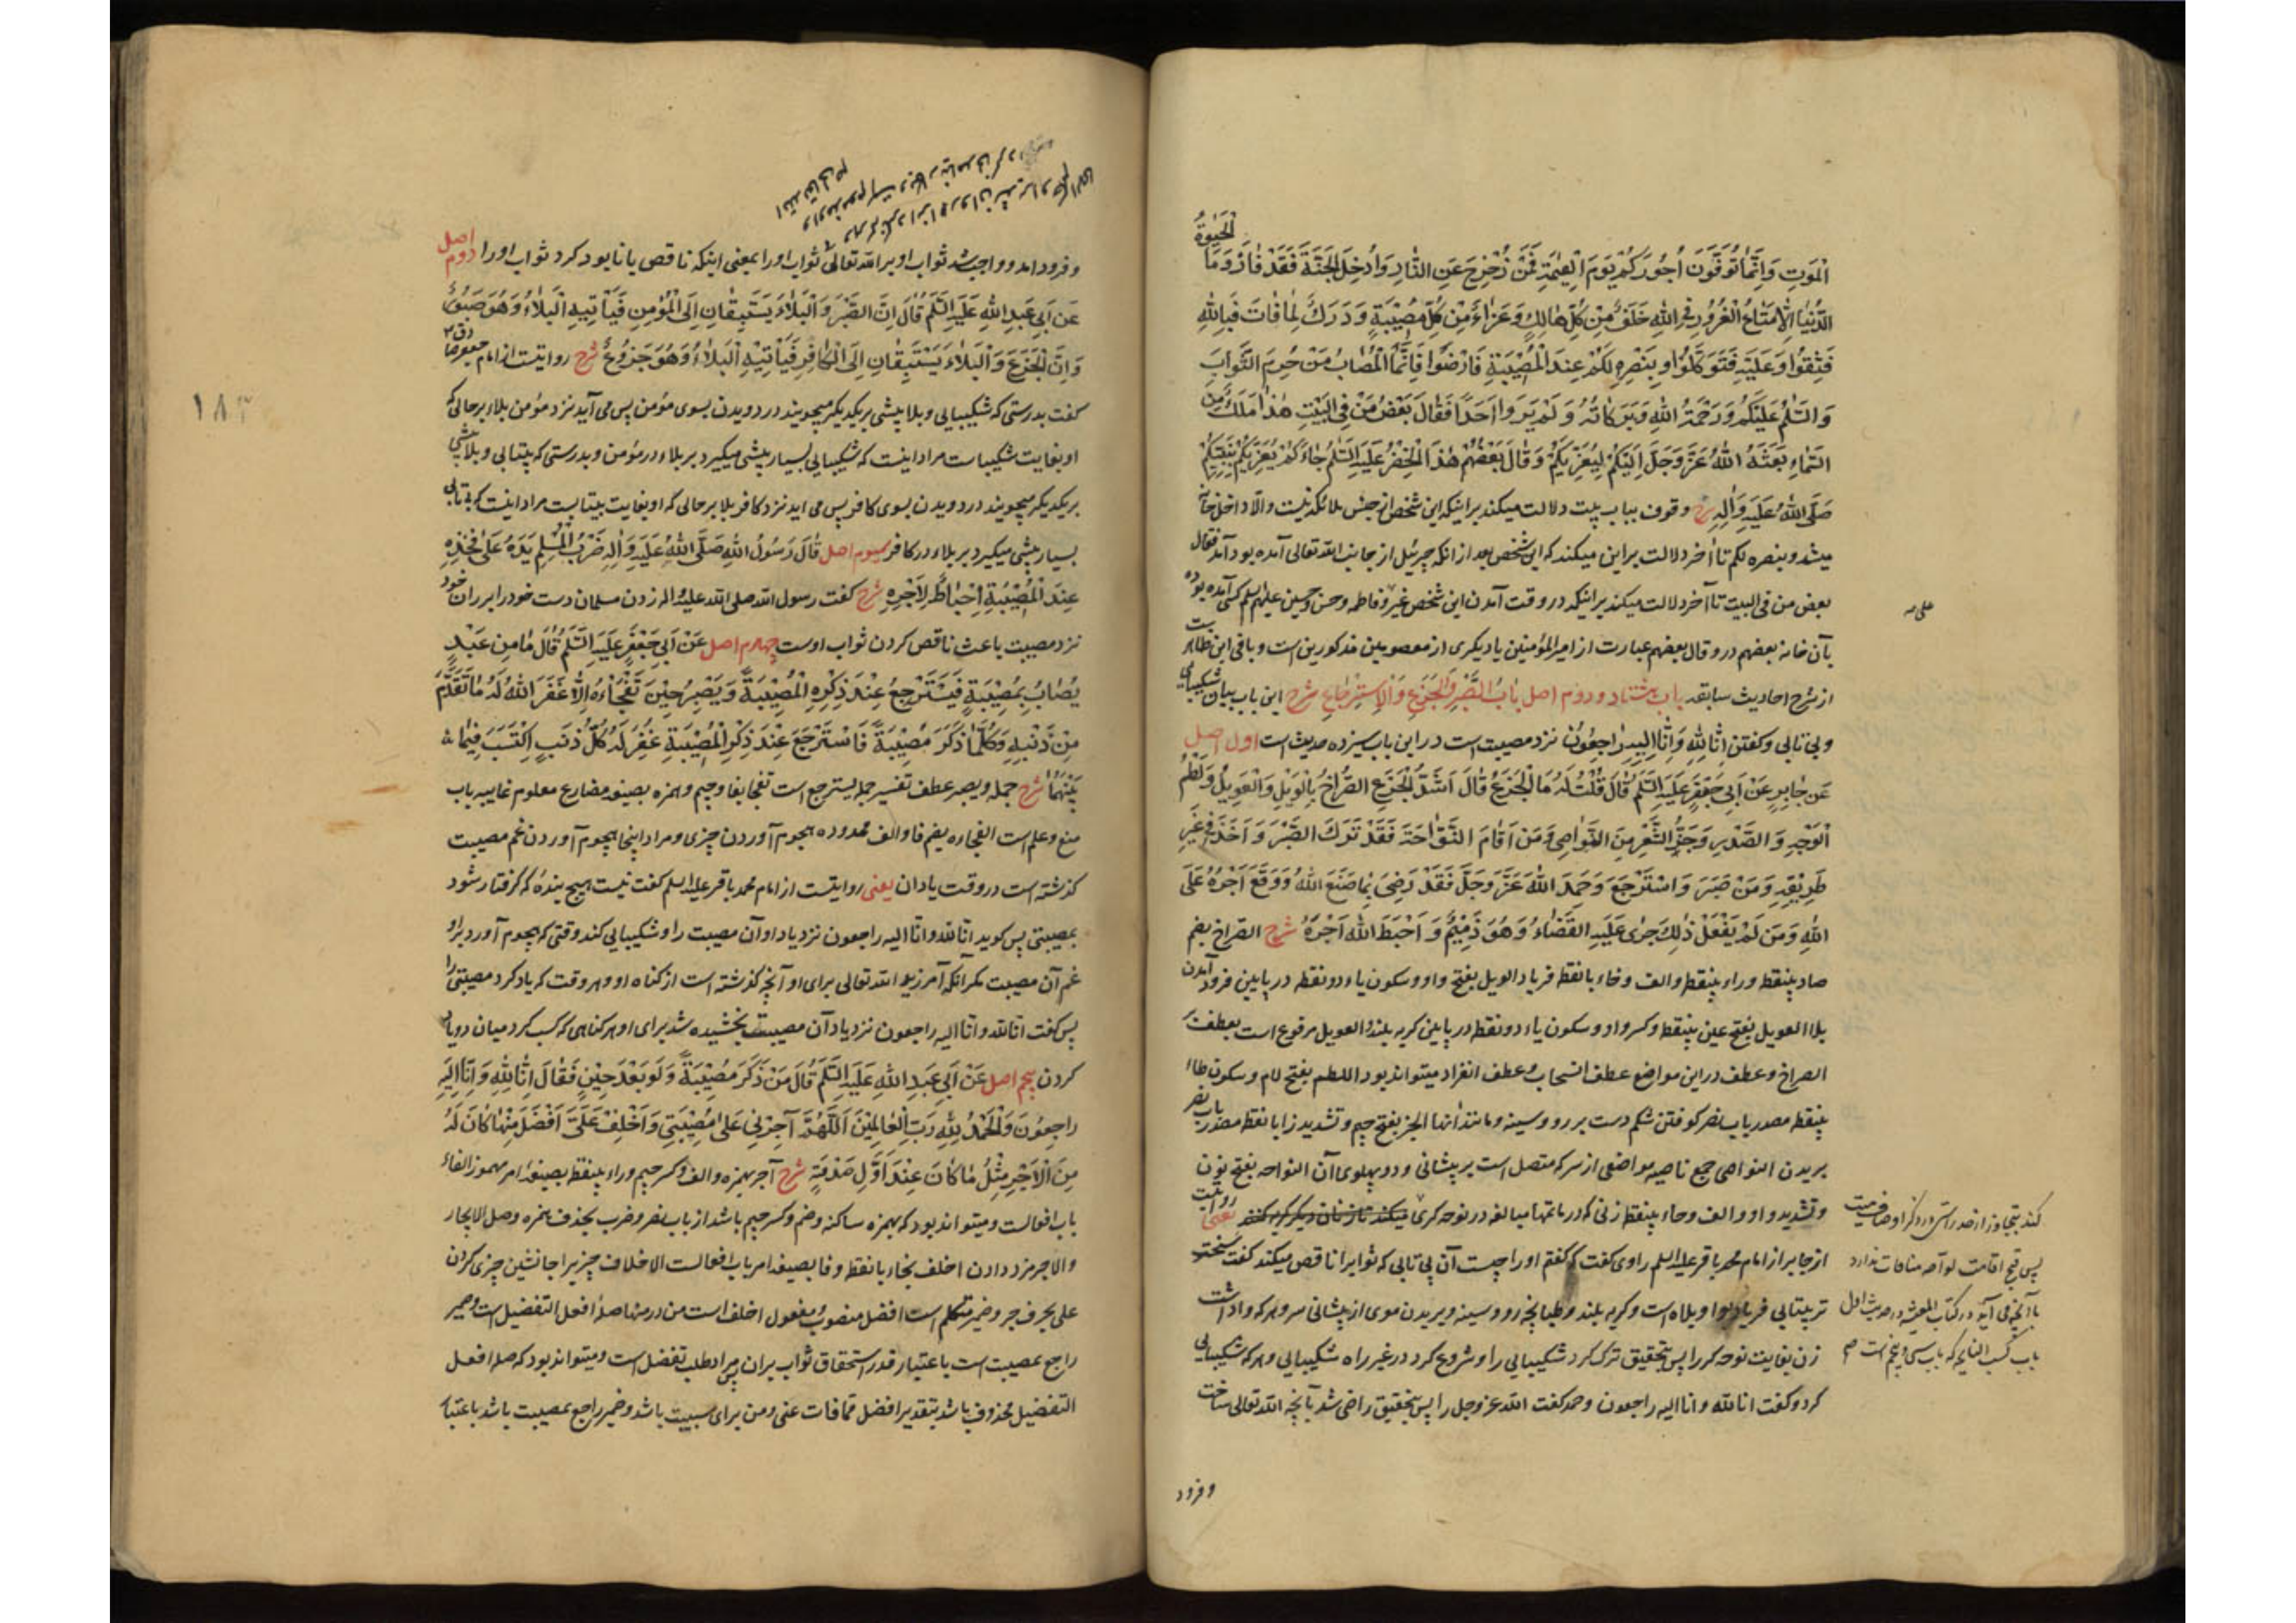 الحیوة
الْمَوْتِ وَاِنَّمَا تُوَفَّوْنَ اُجُورَكُمْ يَوْمَ الْقِيٰمَةِ فَمَنْ زُحْزِحَ عَنِ النَّارِ وَاُدْخِلَ الْجَنَّةَ فَقَدْ فَازَ وَمَا
الدُّنْيَا اِلَّا مَتَاعُ الْغُرُورِ فِي اللهِ خَلَفٌ مِنْ كُلِّ هَالِكٍ وَعَزَاءٌ مِنْ كُلِّ مُصِيبَةٍ وَدَرَكٌ لِمَا فَاتَ فَبِاللهِ
فَثِقُوا وَعَلَيْهِ فَتَوَكَّلُوا وَبِنَصْرِهِ لَكُمْ عِنْدَ الْمُصِيبَةِ فَارْضَوْا فَاِنَّمَا الْمُصَابُ مَنْ حُرِمَ الثَّوَابَ
وَالسَّلٰمُ عَلَيْكُمْ وَرَحْمَةُ اللهِ وَبَرَكَاتُهُ وَلَمْ يَرَوْا اَحَدًا فَقَالَ بَعْضُ مَنْ فِي الْبَيْتِ هٰذَا مَلَكٌ مِنَ
السَّمَاءِ بَعَثَهُ اللهُ عَزَّ وَجَلَّ اِلَيْكُمْ لِيُعَزِّيَكُمْ وَقَالَ بَعْضُهُمْ هٰذَا الْخِضْرُ عَلَيْهِ السَّلٰمُ جَاءَكُمْ يُعَزِّيكُمْ بِنَبِيِّكُمْ
صَلَّى اللهُ عَلَيْهِ وَاٰلِهِ شرح وقوف بباب بیت دلالت میکند بر اینکه این شخص از جنس ملائکه نیست والّا داخل خانه
میشد وبنصره لکم تا آخر دلالت بر این میکند که این شخص بعد از آنکه جبرئیل از جانب الله تعالی آمده بود آمد فقال
بعض من فی البیت تا آخر دلالت میکند بر اینکه در وقت آمدن این شخص غیر وفاطمه وحسن وحسین علیهم السلم کسی آمده بوده
علی صه
بآن خانه بعضهم در وقال بعضهم عبارت از امیر المؤمنین یا دیگری از معصومین مذکورین است وباقی این ظاهر است
از شرح احادیث سابقه باب هشتاد و دوم اصل بَابُ الصَّبْرِ وَالْجَزَعِ وَالْاِسْتِرْجَاعِ شرح این باب بیان شکیبایی
وبی تابی وکفتن اِنَّا لِلّٰهِ وَاِنَّا اِلَيْهِ رَاجِعُونَ نزد مصیبت است در این باب سیزده حدیث است اول اصل
عَنْ جَابِرٍ عَنْ اَبِي جَعْفَرٍ عَلَيْهِ السَّلَمُ قَالَ قُلْتُ لَهُ مَا الْجَزَعُ قَالَ اَشَدُّ الْجَزَعِ الصُّرَاخُ بِالْوَيْلِ وَالْعَوِيلُ وَلَطْمُ
الْوَجْهِ وَالصَّدْرِ وَجَزُّ الشَّعْرِ مِنَ النَّوَاصِي وَمَنْ اَقَامَ النَّوَّاحَةَ فَقَدْ تَرَكَ الصَّبْرَ وَاَخَذَ فِي غَيْرِ
طَرِيقِهِ وَمَنْ صَبَرَ وَاسْتَرْجَعَ وَحَمِدَ اللهَ عَزَّ وَجَلَّ فَقَدْ رَضِيَ بِمَا صَنَعَ اللهُ وَوَقَعَ اَجْرُهُ عَلَى
اللهِ وَمَنْ لَمْ يَفْعَلْ ذٰلِكَ جَرٰى عَلَيْهِ الْقَضَاءُ وَهُوَ ذَمِيمٌ وَاَحْبَطَ اللهُ اَجْرَهُ شرح الصراخ بضم
صاد بینقطه وراء بینقطه والف وخاء بانقطه فریاد الویل بفتح واو وسکون یاء دونقطه در پایین فرود آمدن
بلا العویل بفتح عین بینقطه وکسر واو وسکون یاء دونقطه در پایین کریه بلند والعویل مرفوع است بعطف بر
الصراخ وعطف در این مواضع عطف انسحاب وعطف انفراد میتواند بود اللطم بفتح لام وسکون طاء
بینقطه مصدر باب نصر کوفتن شکم دست بر رو وسینه ومانند آنها الجز بفتح جیم وتشدید زا بانقطه مصدر باب نصر
بریدن النواصی جمع ناصیه مواضعی از سر که متصل است بر پیشانی ودو پهلوی آن النواحه بفتح نون
وتشدید واو والف وحاء بینقطه زنی که در ماتمها مبالغه در نوحه کری میکند تا زنان دیگر کریه کنند یعنی روایتست
از جابر از امام محمد باقر علیه السلم راوی کفت که کفتم اورا چیست آن بی تابی که ثوابرا ناقص میکند کفت سختـ
تر بیتابی فریاد بوا ویلاه است وکریه بلند وطپانچه رو وسینه وبریدن موی از پیشانی سر وهر که واداشت
زن بغایت نوحه کر را پس بتحقیق ترک کرد شکیبایی را وشروع کرد در غیر راه شکیبایی وهر که شکیبایی
کرد وکفت انا لله وانا الیه راجعون وحمد کفت الله عز وجل را پس بتحقیق راضی شد بآنچه الله تعالی ساخت
پس قبح اقامت نواحه منافات ندارد
باآنچه می آید در کتاب المعیشة در حدیث اول
وفرود
وفرود آمد وواجب شد ثواب او بر الله تعالی ثواب اورا یعنی اینکه ناقص یا نابود کرد ثواب اورا دوم اصل
عَنْ اَبِي عَبْدِ اللهِ عَلَيْهِ السَّلَمُ قَالَ اِنَّ الصَّبْرَ وَالْبَلَاءَ يَسْتَبِقَانِ اِلَى الْمُؤْمِنِ فَيَأْتِيهِ الْبَلَاءُ وَهُوَ صَبُورٌ
وَاِنَّ الْجَزَعَ وَالْبَلَاءَ يَسْتَبِقَانِ اِلَى الْكَافِرِ فَيَأْتِيهِ الْبَلَاءُ وَهُوَ جَزُوعٌ شرح روایتست از امام جعفر صادق ع
کفت بدرستی که شکیبایی وبلا پیشی بر یکدیگر میجویند در دویدن بسوی مؤمن پس می آید نزد مؤمن بلاء بر حالی که
او بغایت شکیبا ست مراد اینست که شکیبایی بسیار پیشی میگیرد بر بلاء در مؤمن وبدرستی که بیتابی وبلا پیشی
بر یکدیگر میجویند در دویدن بسوی کافر پس می اید نزد کافر بلا بر حالی که او بغایت بیتابست مراد اینست که بیتابی
بسیار پیشی میگیرد بر بلاء در کافر سیوم اصل قَالَ رَسُولُ اللهِ صَلَّى اللهُ عَلَيْهِ وَاٰلِهِ ضَرْبُ الْمُسْلِمِ يَدَهُ عَلٰى فَخِذِهِ
عِنْدَ الْمُصِيبَةِ اِحْبَاطٌ لِاَجْرِهِ شرح کفت رسول الله صلی الله علیه واله زدن مسلمان دست خود را بر ران خود
نزد مصیبت باعث ناقص کردن ثواب اوست چهارم اصل عَنْ اَبِي جَعْفَرٍ عَلَيْهِ السَّلَمُ قَالَ مَا مِنْ عَبْدٍ
يُصَابُ بِمُصِيبَةٍ فَيَسْتَرْجِعُ عِنْدَ ذِكْرِهِ الْمُصِيبَةَ وَيَصْبِرُ حِينَ تَفْجَأُهُ اِلَّا غَفَرَ اللهُ لَهُ مَا تَقَدَّمَ
مِنْ ذَنْبِهِ وَكُلَّمَا ذَكَرَ مُصِيبَةً فَاسْتَرْجَعَ عِنْدَ ذِكْرِ الْمُصِيبَةِ غَفَرَ لَهُ كُلَّ ذَنْبٍ اكْتَسَبَ فِيمَا
بَيْنَهُمَا شرح جمله ویصبر عطف تفسیر جمله یسترجع است تفجأ بفا وجیم وهمزه بصیغه مضارع معلوم غایبه باب
منع وعلم است الفجاءه بضم فا والف ممدوده هجوم آوردن چیزی ومراد اینجا هجوم آوردن غم مصیبت
کذشته است در وقت یاد آن یعنی روایتست از امام محمد باقر علیه السلم کفت نیست هیچ بنده که گرفتار شود
بمصیبتی پس کوید انا لله وانا الیه راجعون نزد یاد او آن مصیبت را وشکیبایی کند وقتی که هجوم آورد بر او
غم آن مصیبت مکر آنکه آمرزید الله تعالی برای او آنچه کذشته است از کناه او وهر وقت که یاد کرد مصیبتی را
پس کفت انا لله وانا الیه راجعون نزد یاد آن مصیبت بخشیده شد برای او هر کناهی که کسب کرد میان دو یاد
کردن پنجم اصل عَنْ اَبِي عَبْدِ اللهِ عَلَيْهِ السَّلَمُ قَالَ مَنْ ذَكَرَ مُصِيبَةً وَلَوْ بَعْدَ حِينٍ فَقَالَ اِنَّا لِلّٰهِ وَاِنَّا اِلَيْهِ
رَاجِعُونَ وَالْحَمْدُ لِلّٰهِ رَبِّ الْعَالَمِينَ اَللّٰهُمَّ آجِرْنِي عَلٰى مُصِيبَتِي وَاَخْلِفْ عَلَيَّ اَفْضَلَ مِنْهَا كَانَ لَهُ
مِنَ الْاَجْرِ مِثْلُ مَا كَانَ عِنْدَ اَوَّلِ صَدْمَةٍ شرح آجر بهمزه والف وکسر جیم وراء بینقطه بصیغه امر مهموز الفاء
باب افعالست ومیتواند بود که بهمزه ساکنه وضم وکسر جیم باشد از باب نصر وضرب بحذف همزه وصل الایجار
والاجر مزد دادن اخلف بخاء بانقطه وفا بصیغه امر باب افعالست الاخلاف چیزیرا جانشین چیزی کردن
علی بحرف جر وضمیر متکلم است افضل منصوب ومفعول اخلف است من در منها صله افعل التفضیل است وضمیر
راجع بمصیبت است باعتبار قدر استحقاق ثواب بر آن پس مراد طلب تفضل است ومیتواند بود که صله افعل
التفضیل محذوف باشد بتقدیر افضل مما فات عنی ومن برای سببیت باشد وضمیر راجع بمصیبت باشد باعتبار